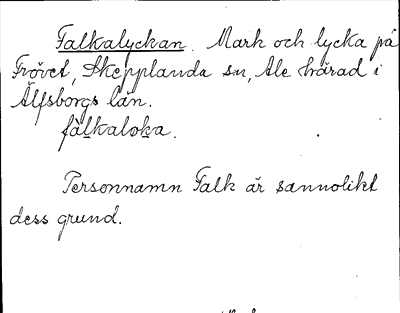 Falkalyckan. Mark och lycka på
Frövet, Skepplanda sn, Ale härad i
Älfsborgs län.
fàlkaloka.
Personnamn Falk är sannolikt
dess grund.